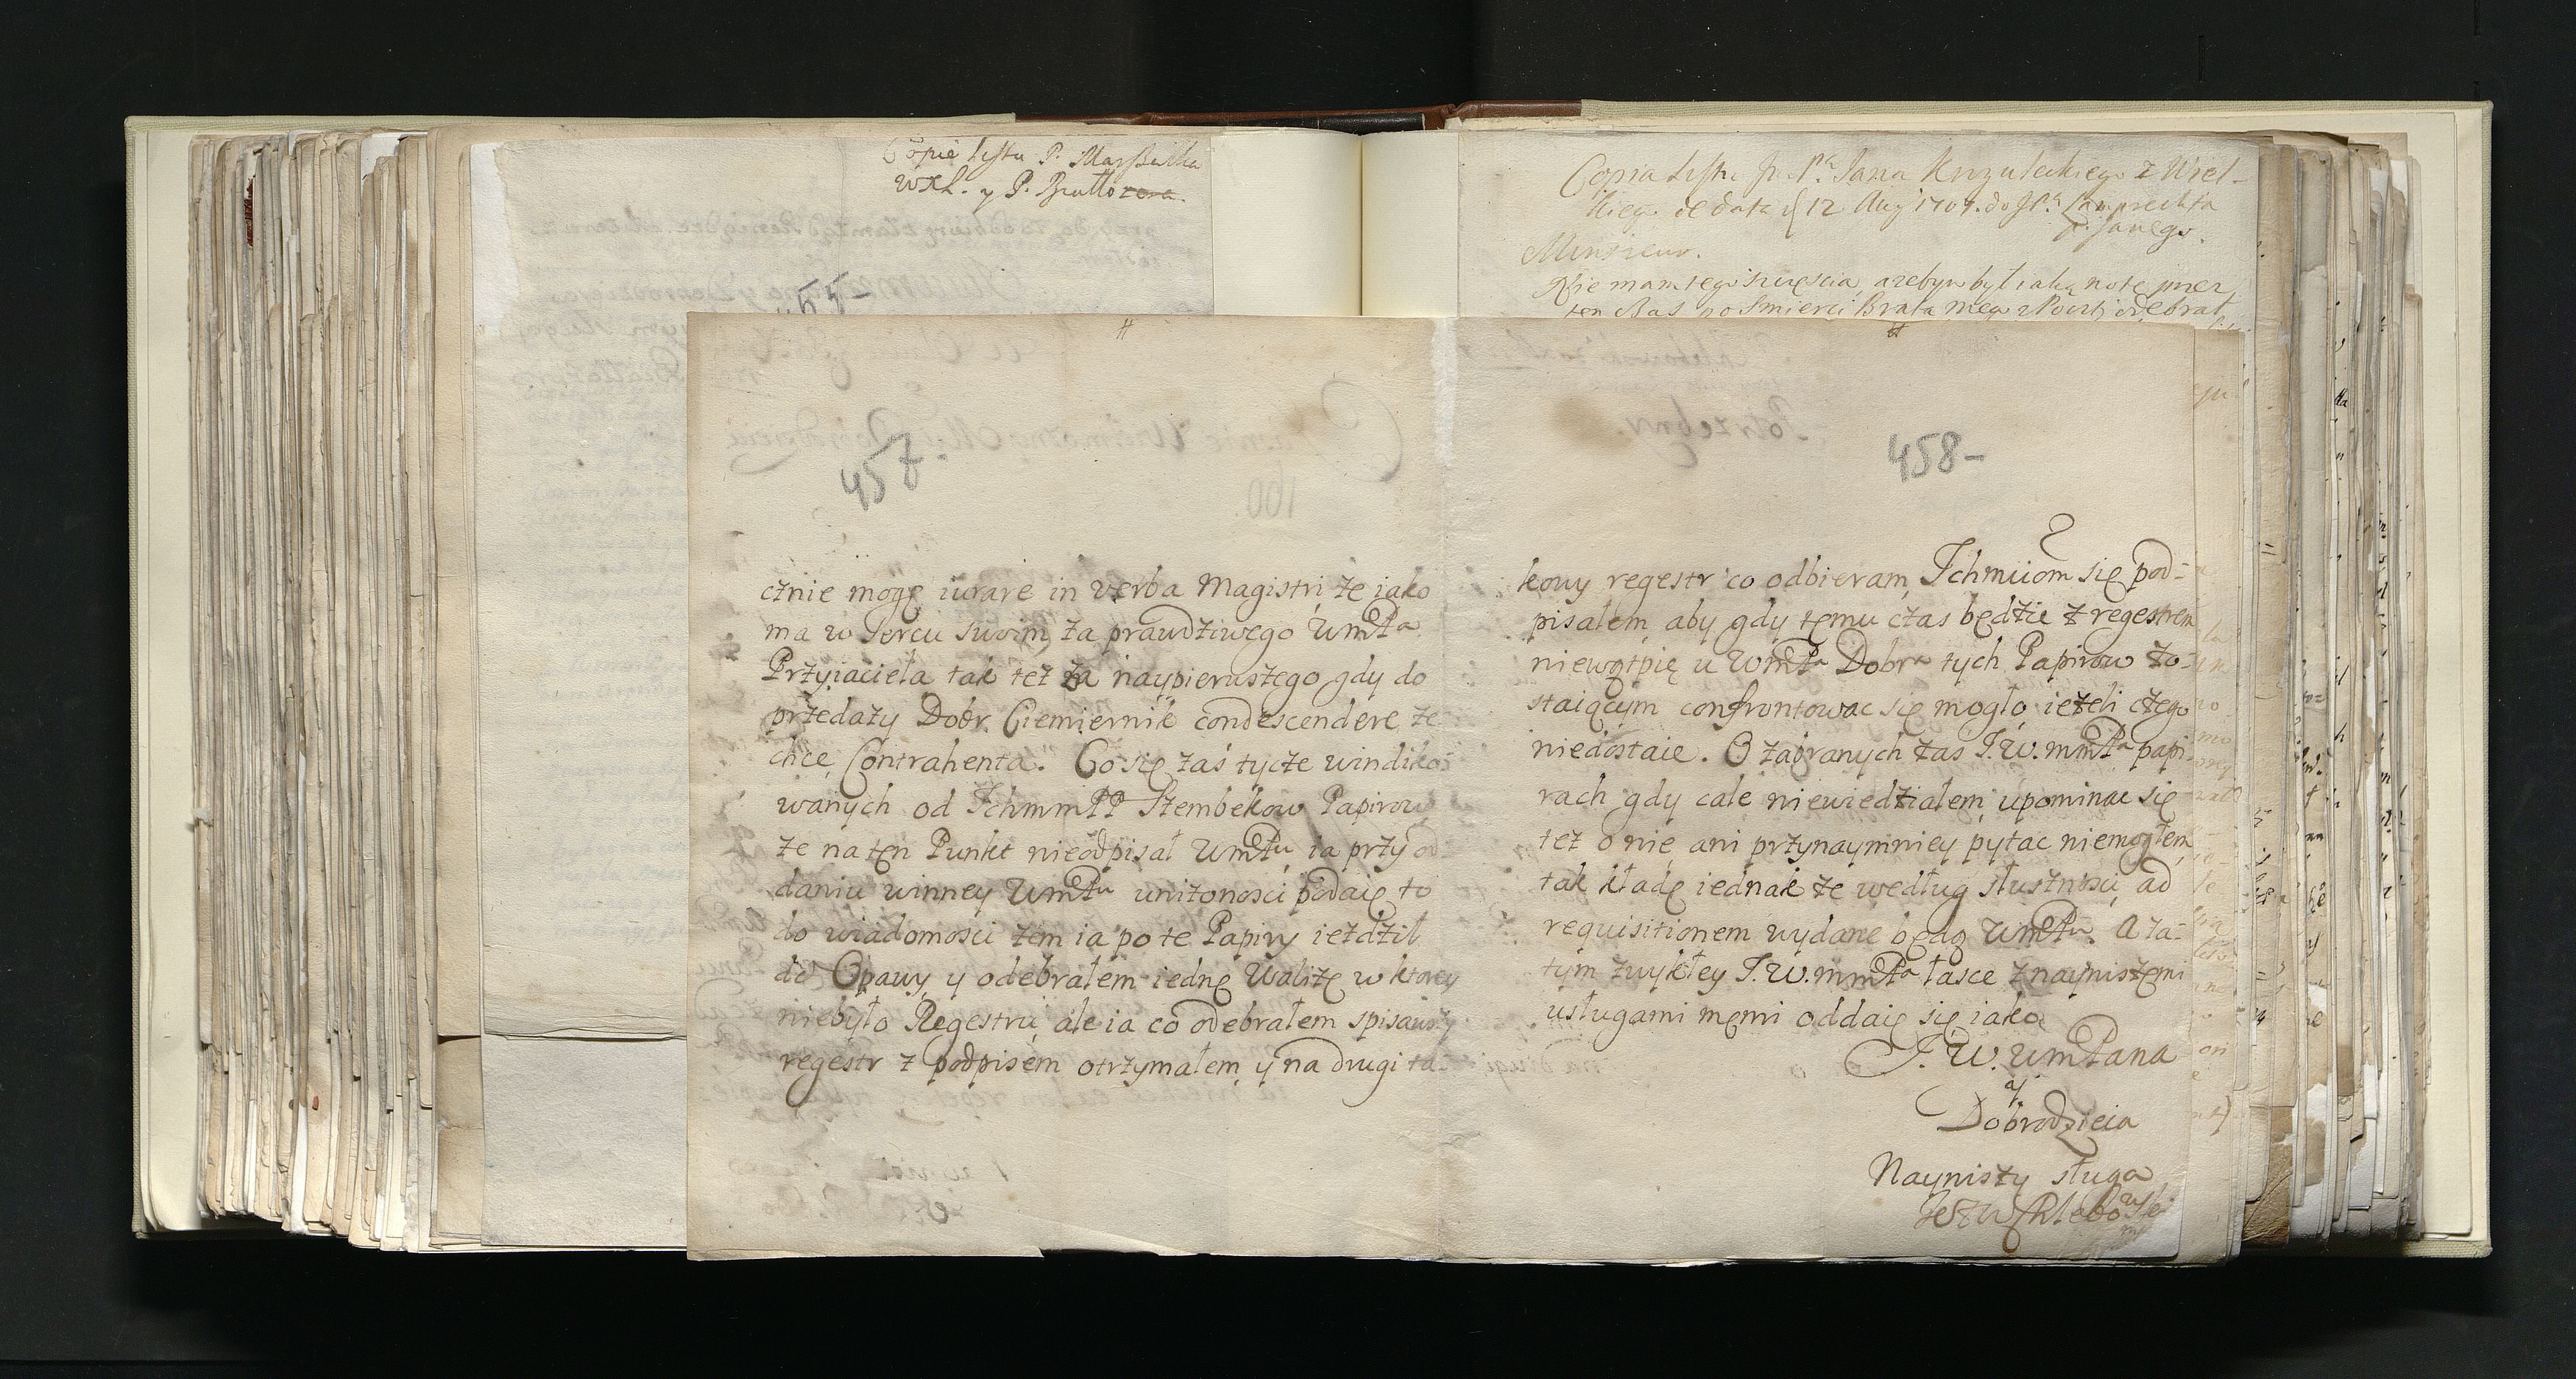 Copie listu P. Marszałka
WXL. y P. Brattorera.
455-
Copia listu Je Pa Jana Krzuleckiego z Wiel-
kiego de data d 12 Aug 1707. do JPa Lamprechta
pisanego.
Monsieur.
Nie mam tego szczęścia, azebym był iaką notę przez
ten Czas po Smierci Brata mego z Poczty odebrał
457
cżnie mogę iurare in verba Magistri że iako
ma w Sercu swoim za prawdżiwego WmPa
Pržyiaciela tak też za naypierwszego gdy do
przedaży Dobr Ciemiernik condescendere ze
chce Contrahenta. Co się zaś tycże windiko-
wanych od IchmmPP Stembekow Papirow
że na ten Punkt nieodpisał WmPu ia przy od
daniu winney WmPu uniżonosci podaię to
do wiadomosci żem ia po te Papiry ieżdżił
do Opawy y odebrałem iednę Waliżę w ktorey
niebyło Regestru, ale ia co odebrałem spisawszy
regestr z podpisem otrzymałem y na drugi ta-
458-
kowy regestr co odbieram Ichmciom się pod-
pisałem aby gdy temu czas będzie z regestrem
niewątpię u WmPa Dobra tych Papirow zo-
staiącym confrontowac się mogło ieżeli czego
niedostaie. O zabranych zas J.W.mmPa papi-
rach gdy cale niewiedziałem upominac się
też o nie ani przynaymniey pytac niemogłem
tak kładę iednak że według słusznosci ad
requisitionem wydane będą WmPu. A za-
tym zwykłey J.W.mmPa łasce z nayniszemi
usługami memi oddaię się iako
J. W. WmPana
y
Dobrodzieia
Nayniszy sługa